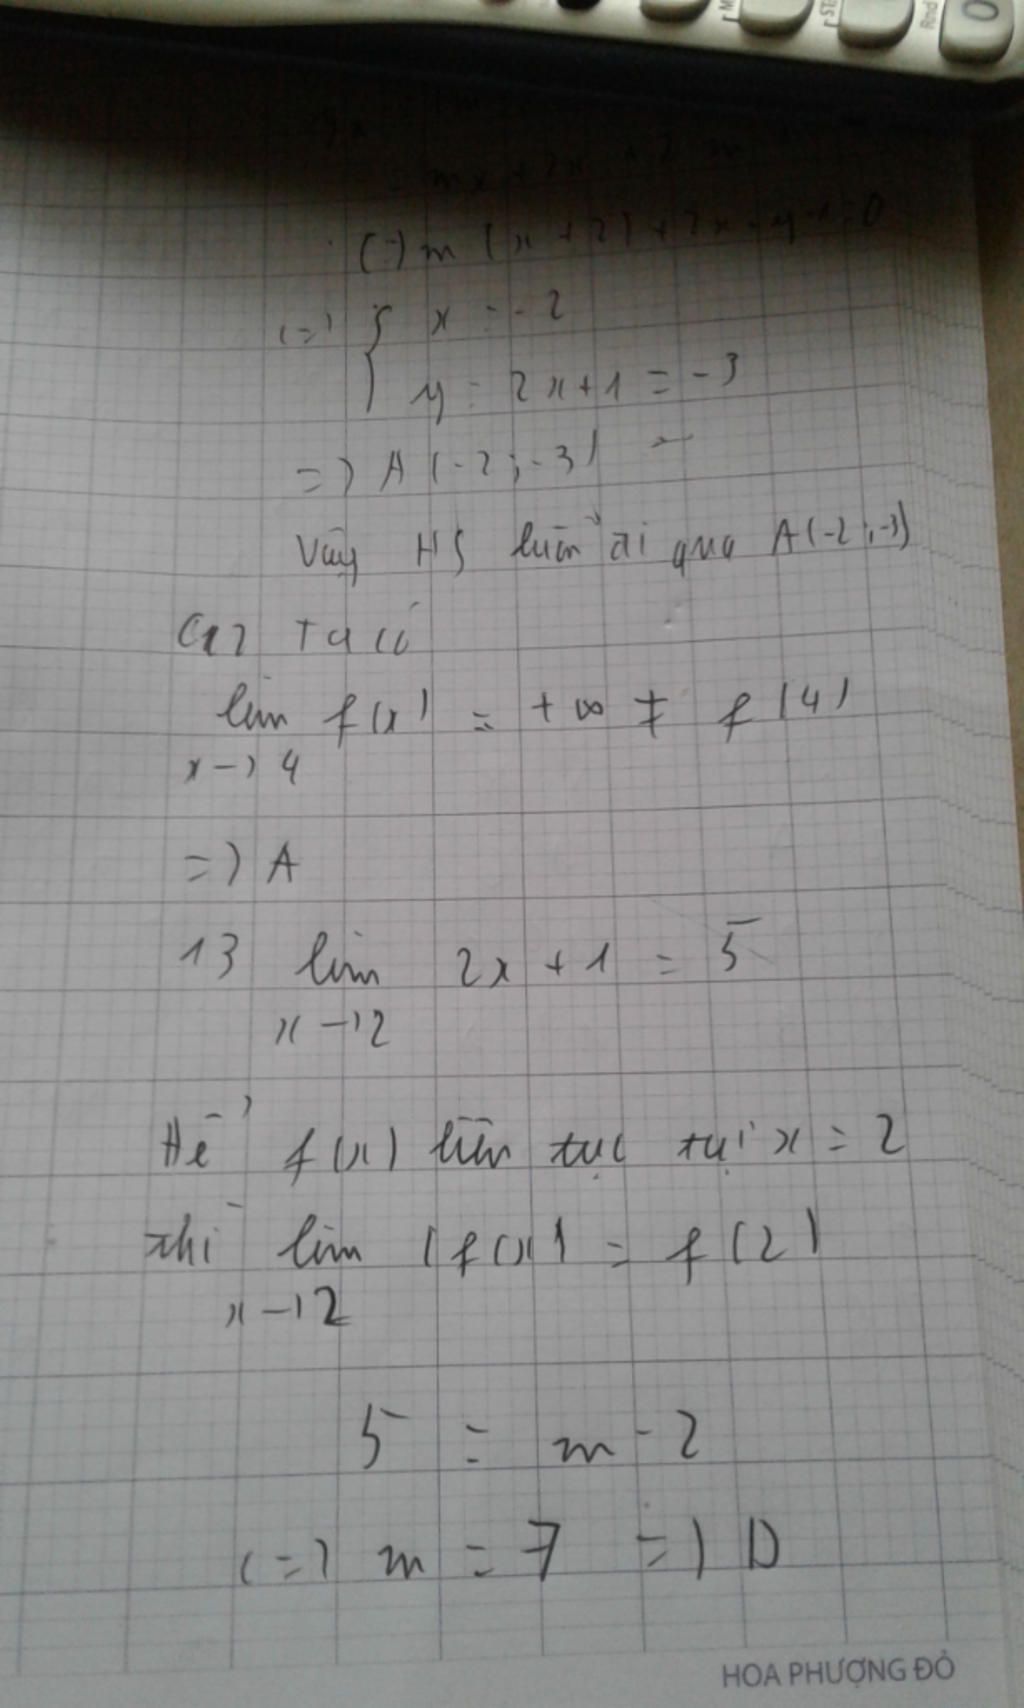 mx + 2x + 2m
(=) m (x + 2) + 2x - y + 1 = 0
(=) { x = -2
y = 2x + 1 = -3
=) A (-2 ; -3)
Vậy HS luôn đi qua A(-2 ; -3)
Ta có
lim f(x) = +∞ ≠ f(4)
x -> 4
=) A
13 lim 2x + 1 = 5
x -> 2
Để f(x) liên tục tại x = 2
thì lim (f(x)) = f(2)
x -> 2
5 = m - 2
(=) m = 7 =) D
HOA PHƯỢNG ĐỎ